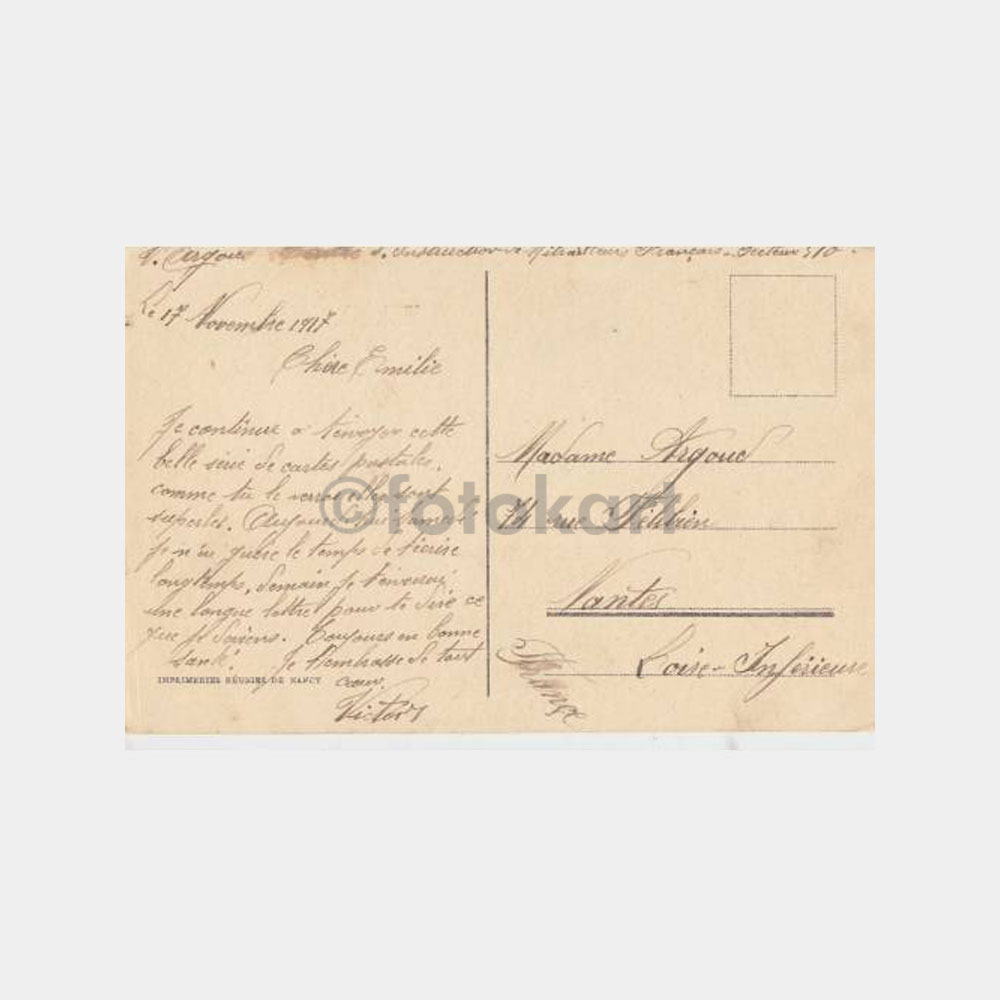 V. Argoud d'Instruction de Mitrailleurs Français - Secteur 510 -
Le 17 Novembre 1917
Chère Emilie
Je continue à t'envoyer cette
belle série de cartes postales,
comme tu le verras elles sont
superbes.
Je n'ai guère le temps de t'écrire
longtemps, demain je t'enverrai
une longue lettre pour te dire ce
que je deviens. Toujours en bonne
santé. Je t'embrasse de tout
cœur.
Victor
IMPRIMERIES RÉUNIES DE NANCY
Madame Argoud
74 rue Félibien
Nantes
Loire-Inférieure
France
©fotokart